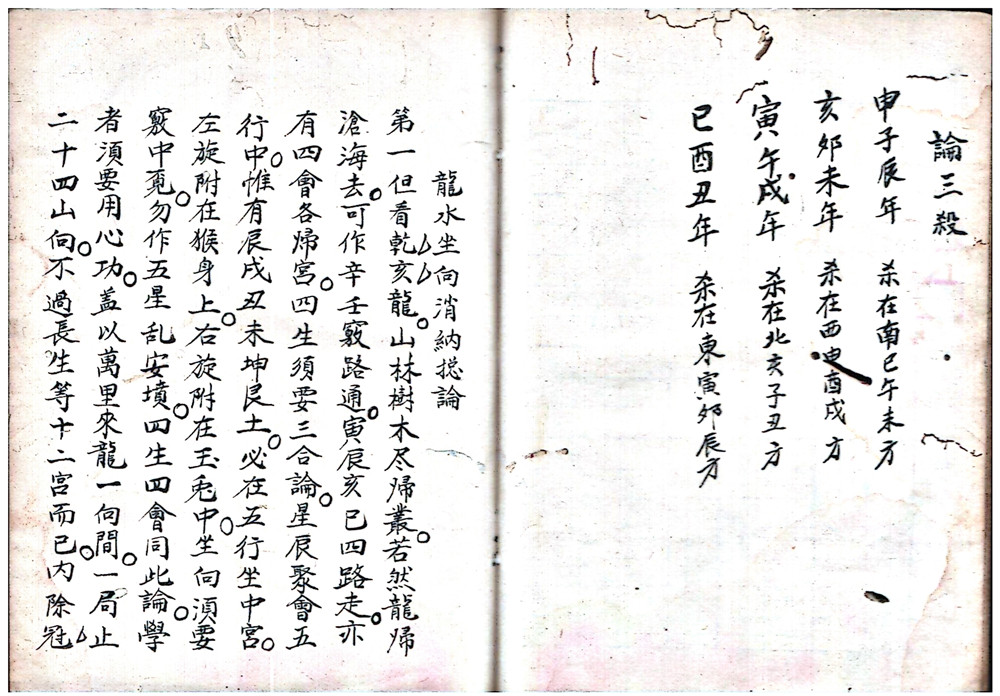 論三殺
申子辰年 杀在南巳午未方
亥卯未年 杀在西申酉戌方
寅午戌年 杀在北亥子丑方
巳酉丑年 杀在東寅卯辰方
龍水坐向消納捴論
第一但看乾亥龍○山林樹木尽帰叢○若然龍帰
滄海去○可作辛壬竅路通○寅辰亥巳四路走○亦
有四會各帰宮○四生須要三合論○星辰聚會五
行中○惟有辰戌丑未坤艮土○必在五行坐中宮○
左旋附在猴身上○右旋附在玉兎中○坐向須要
竅中覓○勿作五星乱安墳○四生四會同此論○學
者須要用心功○盖以萬里來龍一向間○一局止
二十四山向○不過長生等十二宮而已○内除冠